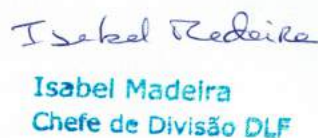 Isabel Madeira
Isabel Madeira
Chefe de Divisão DLF